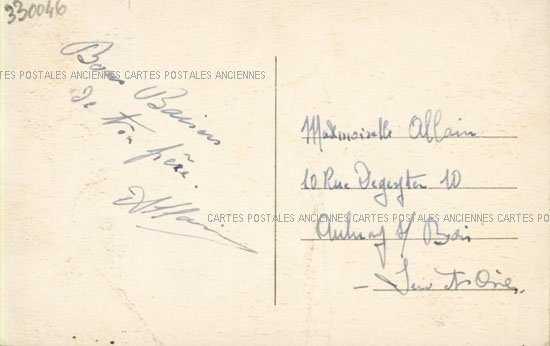 330046
Bons Baisers
de ton père.
Allain
Mademoiselle Allain
10 Rue Degeyter 10
Aulnay s/ Bois
- Seine et Oise.
CARTES POSTALES ANCIENNES CARTES POSTALES ANCIENNES
CARTES POSTALES ANCIENNES CARTES POSTALES ANCIENNES CARTES POS